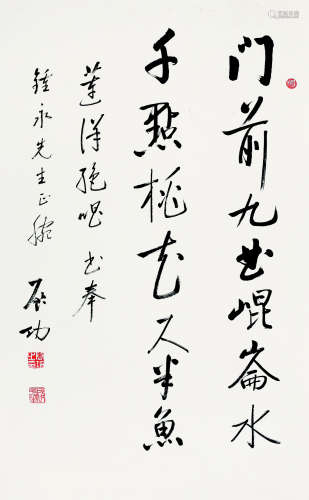 门前九曲崐崙水
千點桃花尺半魚
蓮洋絕唱 书奉
鍾永先生正腕 启功